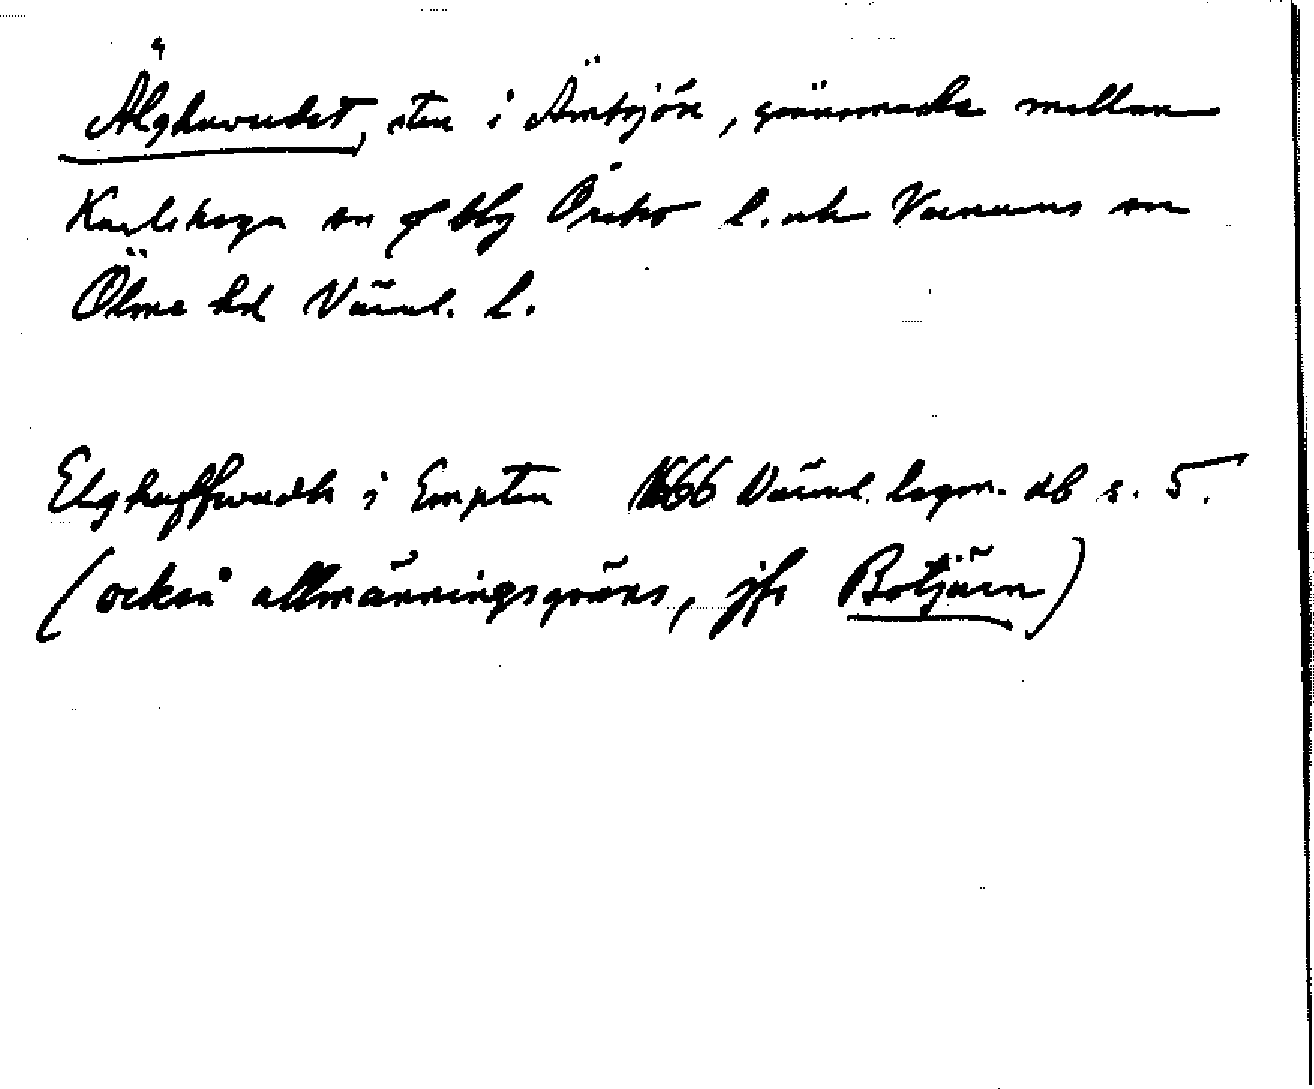 Älghuvudet, sten i Ämtsjön, gränsmärke mellan
Karlskoga sn f Kbg Örebro l. och Varnums sn
Ölme hd Värml. l.
Elghuffwudh i Empten 1666 Värml. lagm. db s. 5.
(också allmänningsgräns, jfr Botjärn)